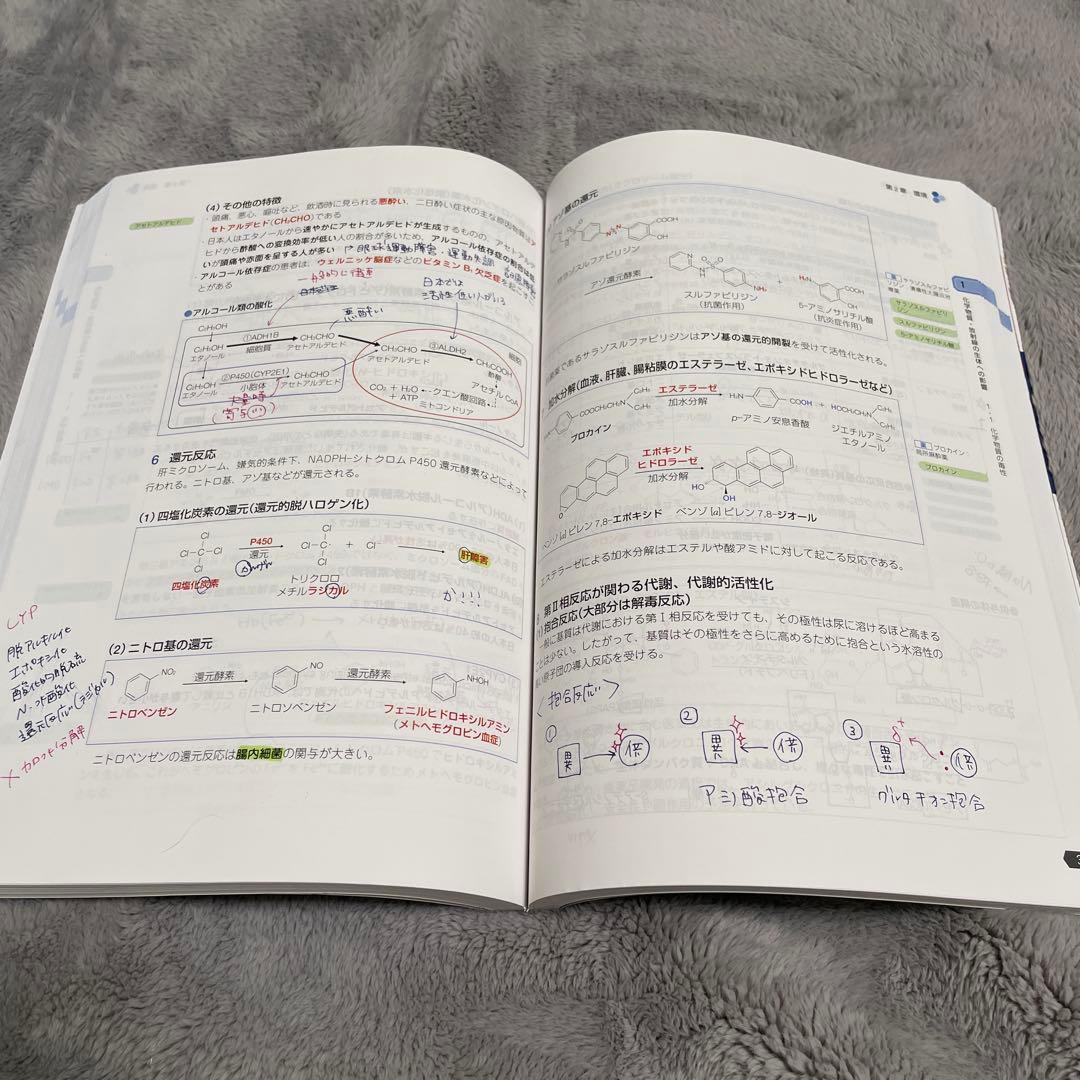 アセトアルデヒド
(4) その他の特徴
・頭痛、悪心、嘔吐など、飲酒時に見られる悪酔い、二日酔い症状の主な原因物質はア
セトアルデヒド(CH₃CHO)である
・日本人はエタノールから速やかにアセトアルデヒドが生成するものの、アセトアルデ
ヒドから酢酸への変換効率が低い人の割合が多いため、アルコール依存症の割合は低
いが頭痛や赤面を呈する人が多い
眼球運動障害・運動失調
・アルコール依存症の患者は、ウェルニッケ脳症などのビタミンB₁欠乏症を起こす
とがある
日本では
活性低い人がいる
●アルコール類の酸化
悪酔い
C₂H₅OH
C₂H₅OH ①ADH1B CH₃CHO
エタノール 細胞質 アセトアルデヒド
CH₃CHO ③ALDH2 CH₃COOH
アセトアルデヒド 酢酸
細胞
C₂H₅OH ②P450(CYP2E1) CH₃CHO
エタノール 小胞体 アセトアルデヒド
大量時
アセチル CoA
CO₂ + H₂O クエン酸回路
+ ATP
ミトコンドリア
6 還元反応
肝ミクロソーム、嫌気的条件下、NADPH-シトクロム P450 還元酵素などによって
行われる。ニトロ基、アゾ基などが還元される。
(1) 四塩化炭素の還元(還元的脱ハロゲン化)
Cl Cl
Cl—C—Cl P450 還元 Cl—C・ + Cl 肝障害
Cl Cl
四塩化炭素 トリクロロ
メチルラジカル
CYP
脱アルキル化
エポキシ化
酸化的脱硫
N-水酸化
還元反応(ラジカル)
× カロット分解
(2) ニトロ基の還元
NO₂ 還元酵素 NO 還元酵素 NHOH
ニトロベンゼン ニトロソベンゼン フェニルヒドロキシルアミン
(メトヘモグロビン血症)
ニトロベンゼンの還元反応は腸内細菌の関与が大きい。
第2章 環境
アゾ基の還元
サラゾスルファピリジン
アゾ還元酵素
スルファピリジン
(抗菌作用)
5-アミノサリチル酸
(抗炎症作用)
であるサラゾスルファピリジンはアゾ基の還元的開裂を受けて活性化される。
加水分解(血液、肝臓、腸粘膜のエステラーゼ、エポキシドヒドロラーゼなど)
エステラーゼ
加水分解
プロカイン
p-アミノ安息香酸
ジエチルアミノ
エタノール
エポキシド
ヒドロラーゼ
加水分解
ベンゾ[a]ピレン 7,8-エポキシド ベンゾ[a]ピレン 7,8-ジオール
エステラーゼによる加水分解はエステルや酸アミドに対して起こる反応である。
第Ⅱ相反応が関わる代謝、代謝的活性化
抱合反応(大部分は解毒反応)
一般に基質は代謝における第Ⅰ相反応を受けても、その極性は尿に溶けるほど高まる
ことは少ない。したがって、基質はその極性をさらに高めるために抱合という水溶性の
高い原子団の導入反応を受ける。
〈抱合反応〉
① 異 → 倍
② 異 ← 倍
アミノ酸抱合
③ 異 δ⁺ 倍
グルタチオン抱合
サラゾスルファピリジン
スルファピリジン
5-アミノサリチル酸
薬 プロカイン:
局所麻酔薬
プロカイン
1
化学物質・放射線の生体への影響
1・1 化学物質の毒性